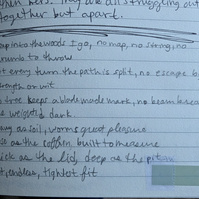 than hers. They are all struggling out
together but apart.
eep into the woods I go, no map, no string, no
crumb to throw
at every turn the path is split, no escape by
strength or wit
tree keeps a blade made mark, no beam breaks
weighted dark.
as soil, worms great pleasure
as the coffin, built to measure
ick as the lid, deep as the
endless, tightest fit